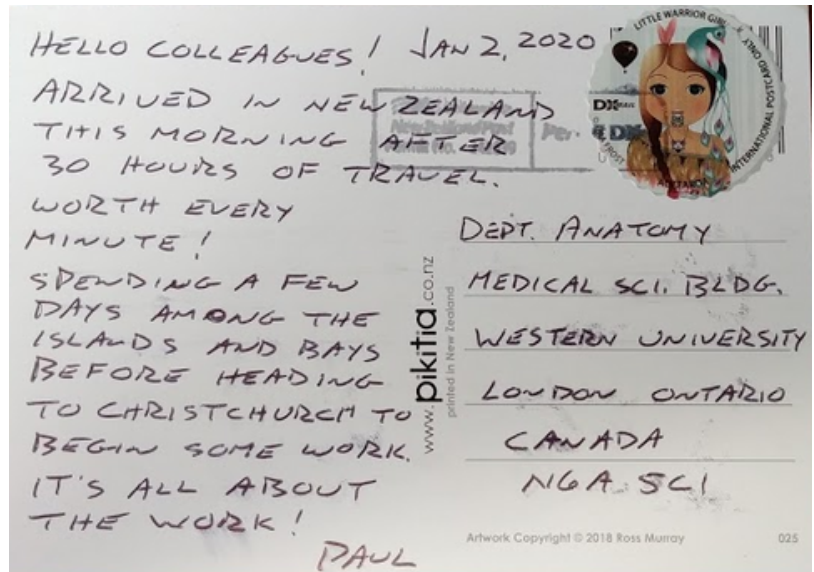 HELLO COLLEAGUES! JAN 2, 2020
ARRIVED IN NEW ZEALAND
THIS MORNING AFTER
30 HOURS OF TRAVEL.
WORTH EVERY
MINUTE!
SPENDING A FEW
DAYS AMONG THE
ISLANDS AND BAYS
BEFORE HEADING
TO CHRISTCHURCH TO
BEGIN SOME WORK.
IT'S ALL ABOUT
THE WORK!
PAUL
LITTLE WARRIOR GIRL
INTERNATIONAL POSTCARD ONLY
AOTEAROA
FROST
DX MAIL
New Zealand Post
DX
www.pikitia.co.nz
printed in New Zealand
DEPT. ANATOMY
MEDICAL SCI. BLDG.
WESTERN UNIVERSITY
LONDON ONTARIO
CANADA
N6A 5C1
Artwork Copyright © 2018 Ross Murray
025